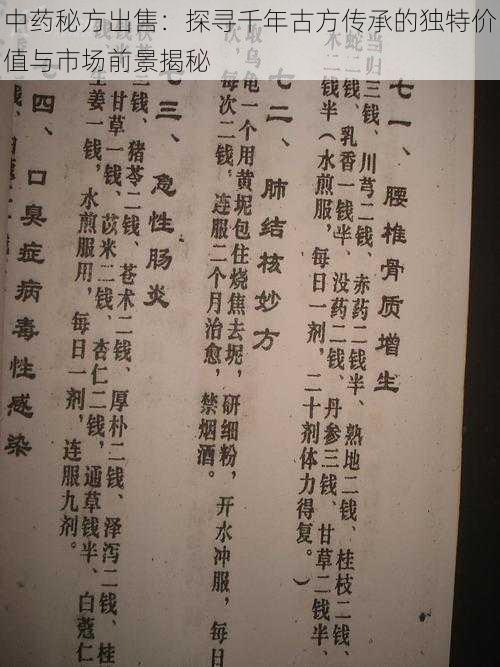 中药秘方出售：探寻千年古方传承的独特价
值与市场前景揭秘
七一、腰椎骨质增生
当归三钱、川芎二钱、赤药二钱半、熟地二钱、桂枝二钱、
蛇二钱、乳香一钱半、没药二钱、丹参三钱、甘草二钱半、
木二钱半（水煎服，每日一剂，二十剂体力得复。）
七二、肺结核妙方
取乌龟一个用黄坭包住烧焦去坭，研细粉，开水冲服，每日
每次二钱，连服二个月治愈，禁烟酒。
七三、急性肠炎
茯苓三钱、猪苓二钱、苍术二钱、厚朴二钱、泽泻二钱、桂
甘草一钱、苡米二钱、杏仁二钱，通草钱半、白蔻仁
生姜一钱，水煎服用，每日一剂，连服九剂。
七四、口臭症病毒性感染
钱、白蔻